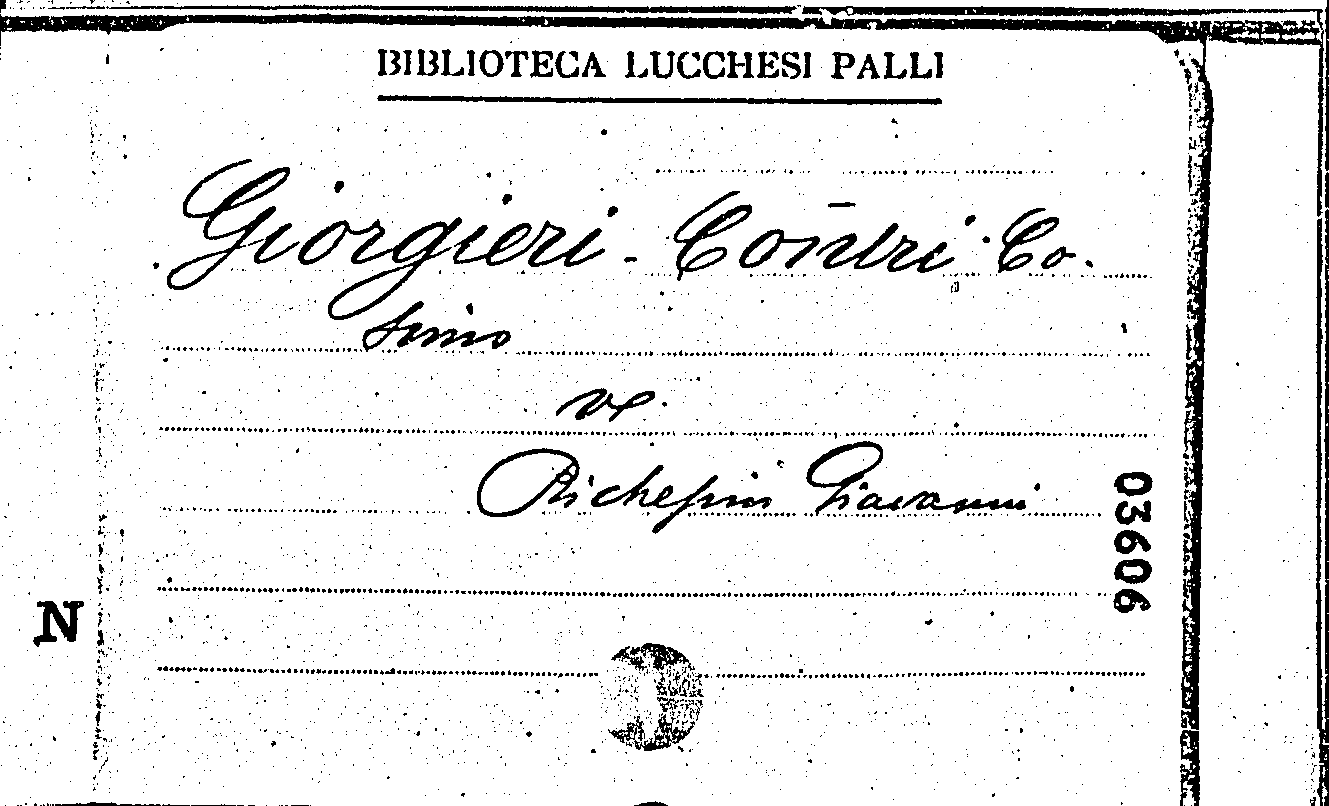 BIBLIOTECA LUCCHESI PALLI
Giorgieri - Contri Co.
simo
ve.
Richepin Giovanni
03606
N